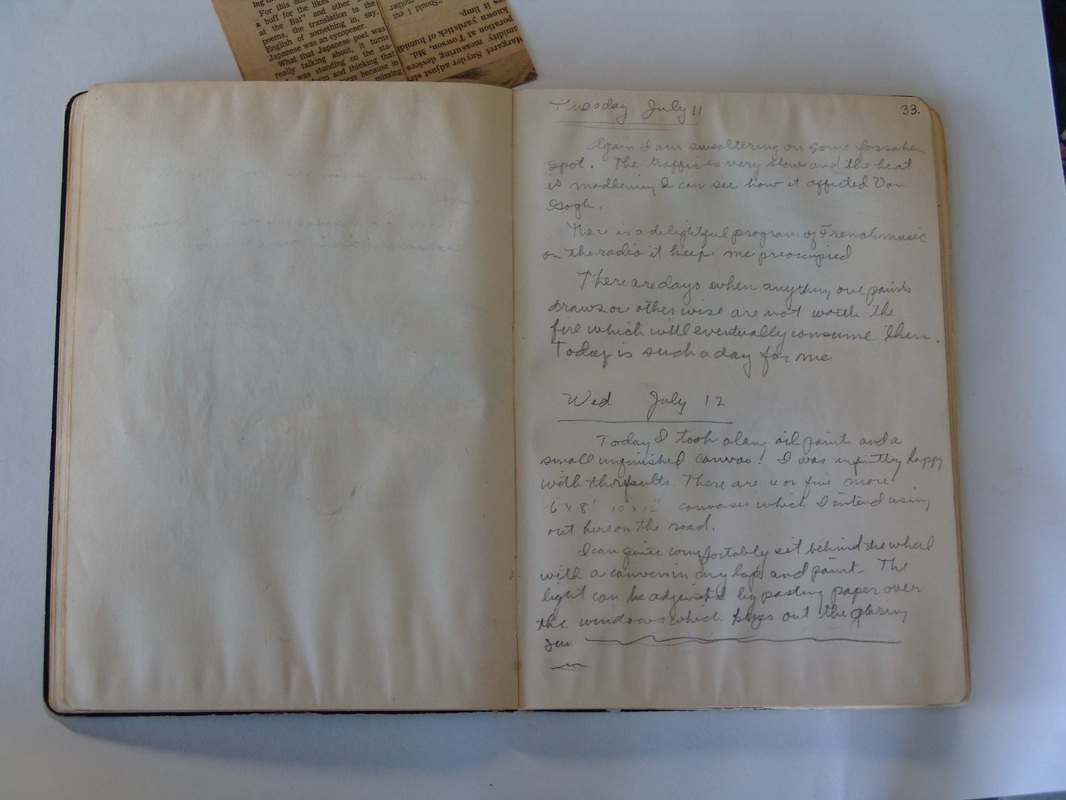 For this
a buff for the likes
at the Bat" and other
poems, the translation to the
English of something in, say,
Japanese was an eyeopener.
What that Japanese poet was
really talking about, it turns
was standing on the sta-
and thinking that
because in
missing
Margaret Snyder adjust
midity measuring devices
poration at Towson, Md.
known yardstick of humid
es it limp.
"Should I cut
Tuesday July 11
33.
Again I am sweltering on some forsaken
spot. The traffic is very slow and the heat
is maddening I can see how it affected Van
Gogh.
There is a delightful program of French music
on the radio it keeps me preoccupied
There are days when anything one paints
draws or other wise are not worth the
fire which will eventually consume them.
Today is such a day for me
Wed July 12
Today I took along oil paints and a
small unfinished canvas! I was infinitly happy
with the results. There are 4 or five more
6 x 8" 10" x 12" canvases which I intend using
out here on the road.
I can quite comfortably sit behind the wheel
with a canvas in my lap and paint. The
light can be adjusted by pasting paper over
the windows which keeps out the glaring
sun